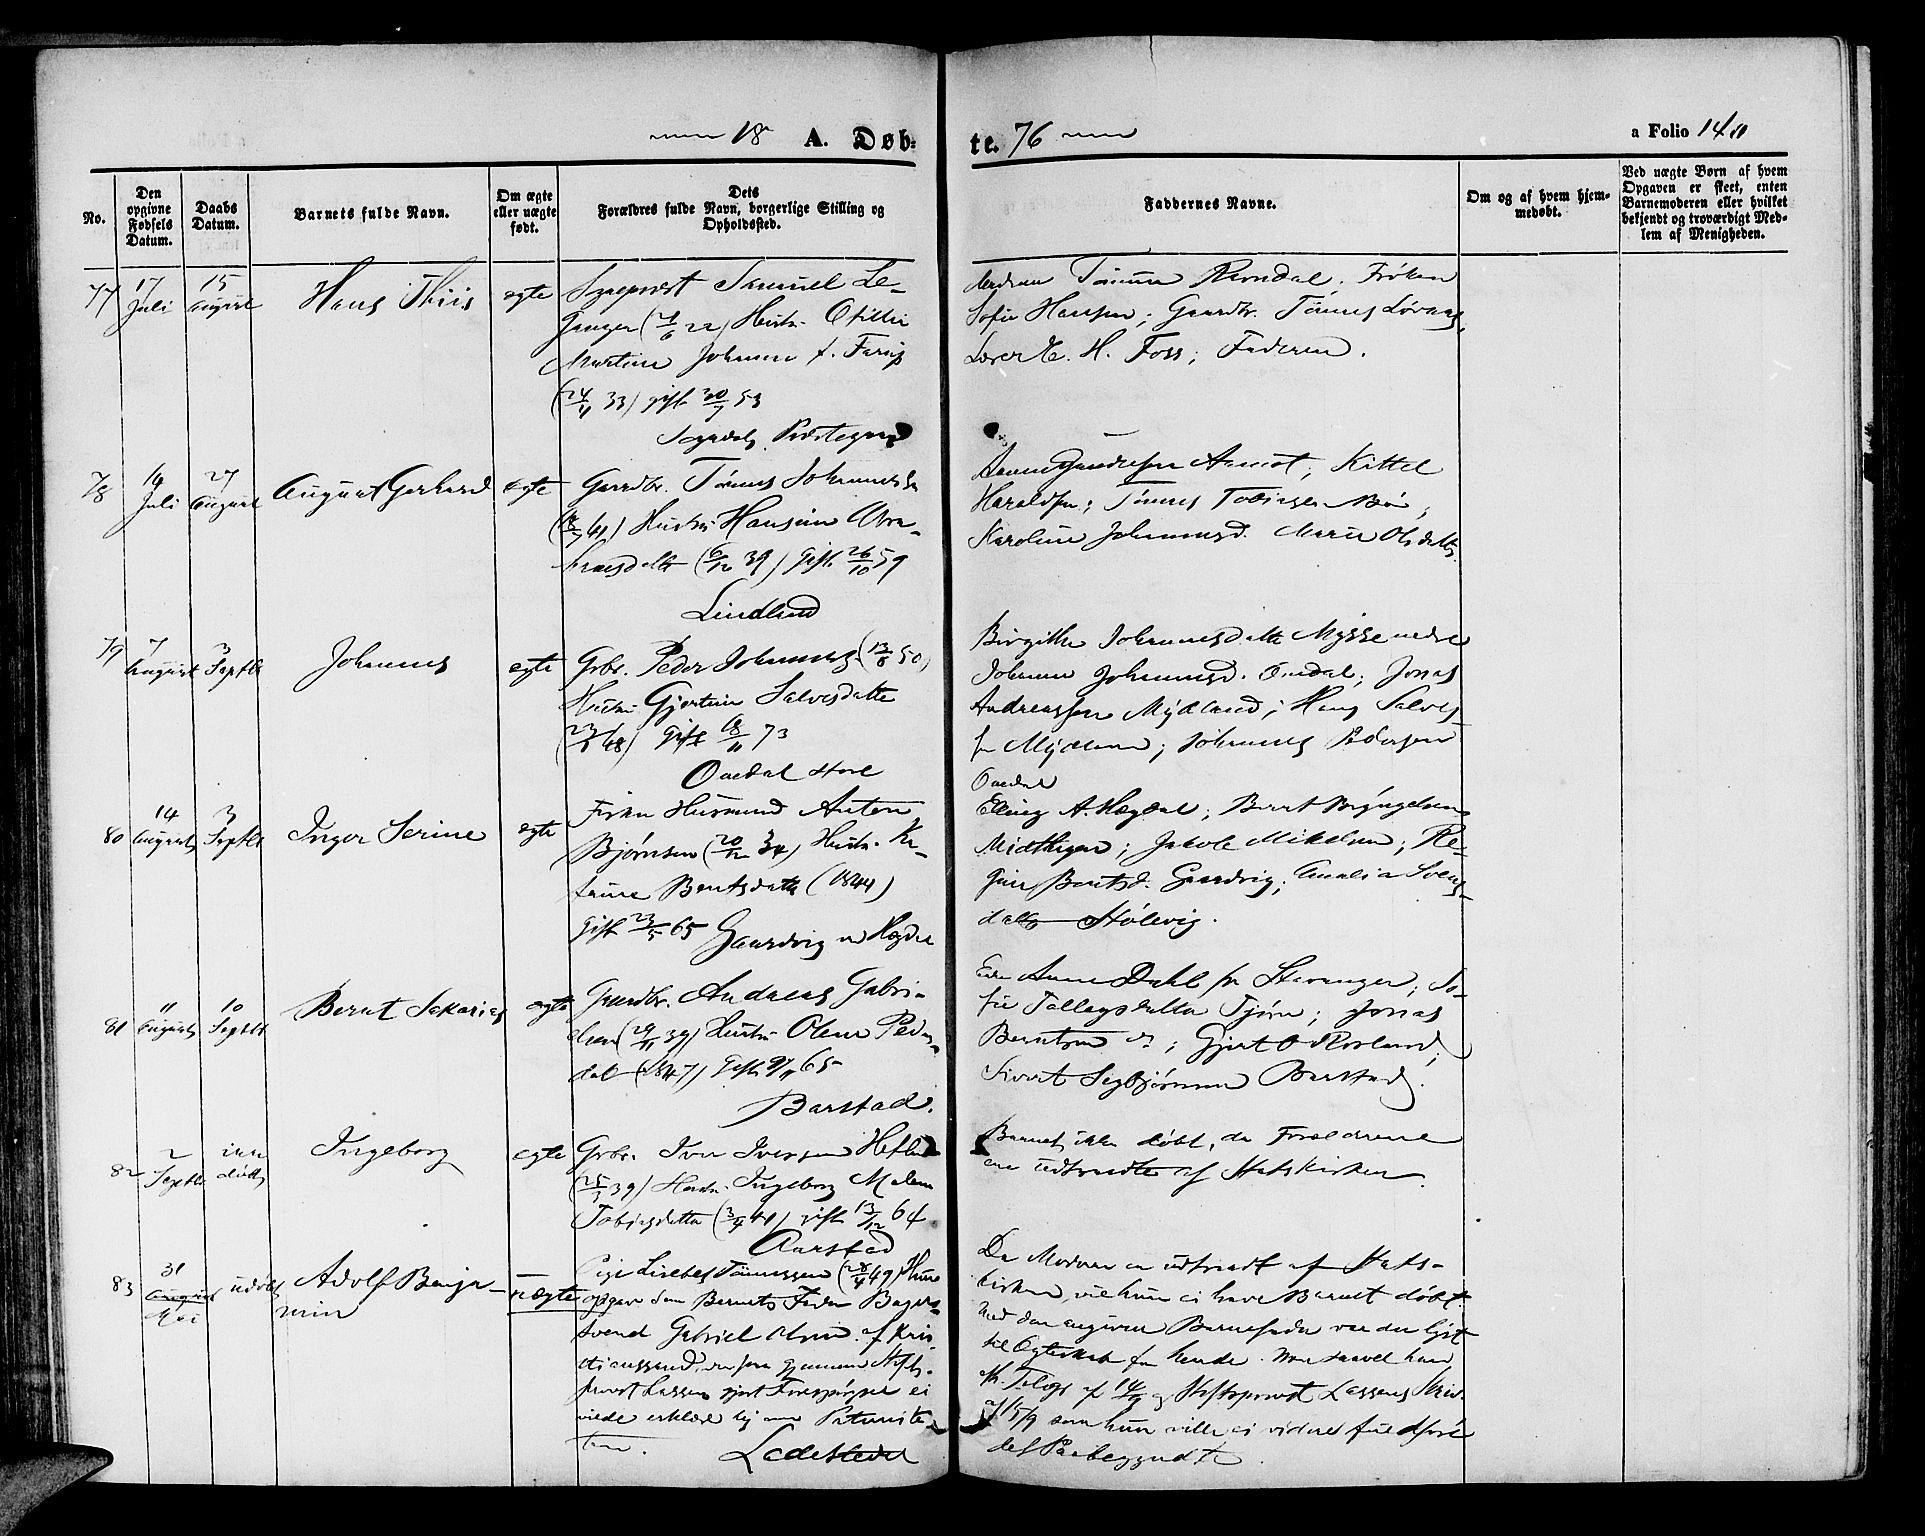 18 A. Døb=
te. 76
a Folio 140
No.
Den opgivne Fødsels Datum.
Daabs Datum.
Barnets fulde Navn.
Om ægte eller uægte født.
Dets Forældres fulde Navn, borgerlige Stilling og Opholdssted.
Faddernes Navne.
Om og af hvem hjemmedøbt.
Ved uægte Børn af hvem Opgaven er skeet, enten Barnemoderen eller hvilket bekjendt og troværdigt Medlem af Menigheden.
77
17 Juli
15 August
Hans Thiis
egte
Sogneprest Samuel Le-
ganger (4/6 22) Hustr. Otillie
Martine Johanne f. Farup
(24/11 33) gift 20/7 53
Sogndals Prestegaard
Sofie Hansen; Gaardbr. Tønnes Løvaas,
Lærer E. H. Foss; Faderen.
78
Juli
27 August
August Gerhard
egte
Gaardbr. Tønnes Johannesen
Hustr. Hansine Abra-
hamsdatter (6/12 39) gift 26/10 59
Lindland
Aamot; Kittel
Haraldsen; Tønnes Tobiassen Bø;
Karoline Johannesd. Marie Olsdatter
79
7 August
3 Septbr
Johannes
egte
Gbr. Peder Johannes. (13/8 50)
Hustr. Gjertine Salvesdatter
gift 18/11 73
Omdal store
Birgithe Johannesdatter Mysse nedre
Johanne Johannesd. Omdal; Jonas
Andreassen Mydland; Hans Salves-
sen Mydland; Johannes Pedersen
Omdal
80
14 August
3 Septbr
Inger Serine
egte
Fisker Husmand Anton
Bjørnsen (20/12 34) Hustr. Ka-
trine Berntsdatter (1844)
gift 23/5 65 Gaardvig v Rægdal
Elling A. Rægdal; Bernt Bryngelsen
Midthigen; Jakob Mikelsen; Re-
gine Berntsd. Gaardvig; Amalia Svens-
datter Stølevig.
81
11 August
10 Septbr
Bernt Sakarias
egte
Gaardbr. Andreas Gabri-
elsen (29/11 39) Hustr. Olene Peders-
datter (1847) gift 9/11 65
Barstad.
Anne Dahl fr Stavanger; So-
fie Tallagsdatter Tjørn; Jonas
Berntsen do; Gjert O Rosland;
Sivert Sigbjørnsen Barstad.
82
2 Septbr
ikke døbt
Ingeborg
egte
Gbr. Iver Iversen
(25/3 39) Hustr. Ingeborg Malene
Tobiasdatter (3/9 41) gift 13/12 64
Aarstad
Barnet ikke døbt, da Forældrene
ere udtraadte af Statskirken.
83
31 August Mai
udøbt
Adolf Benja-
min
uægte
Pige Lisebet Tønnessen (28/4 49) Hun
opgav som Barnets Fader Bager-
svend Gabriel Olsen af Kris-
tianssand, der paa gjennem Stifts-
provst Lassen gjort Forespørgsel ei
vilde erklære sig om Paterniteten.
Ledestedet
Da Moderen er udtraadt af Stats-
kirken, vil hun ei have Barnet døbt.
Med den angivne Barnefader var der lyst
til Ægteskab for hende. Men saavel han
Telegr af 14/9 og Stiftsprovst Lassens Skriv.
af 15/9 som hun ville ei videre fuldføre
det Paabegyndte.